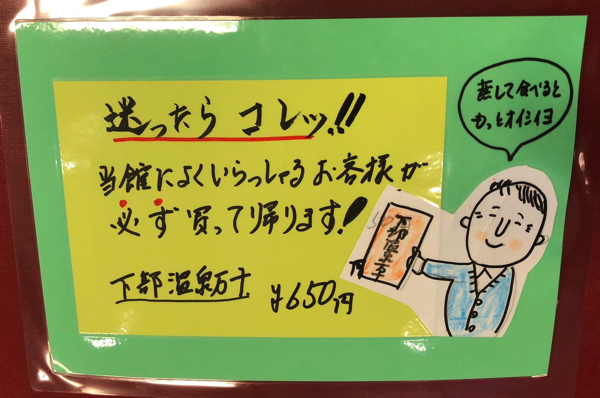 迷ったら コレッ!!
当館によくいらっしゃるお客様が
必ず買って帰ります!
下部温泉万十 ¥650円
蒸して食べると
もっとオイシイヨ